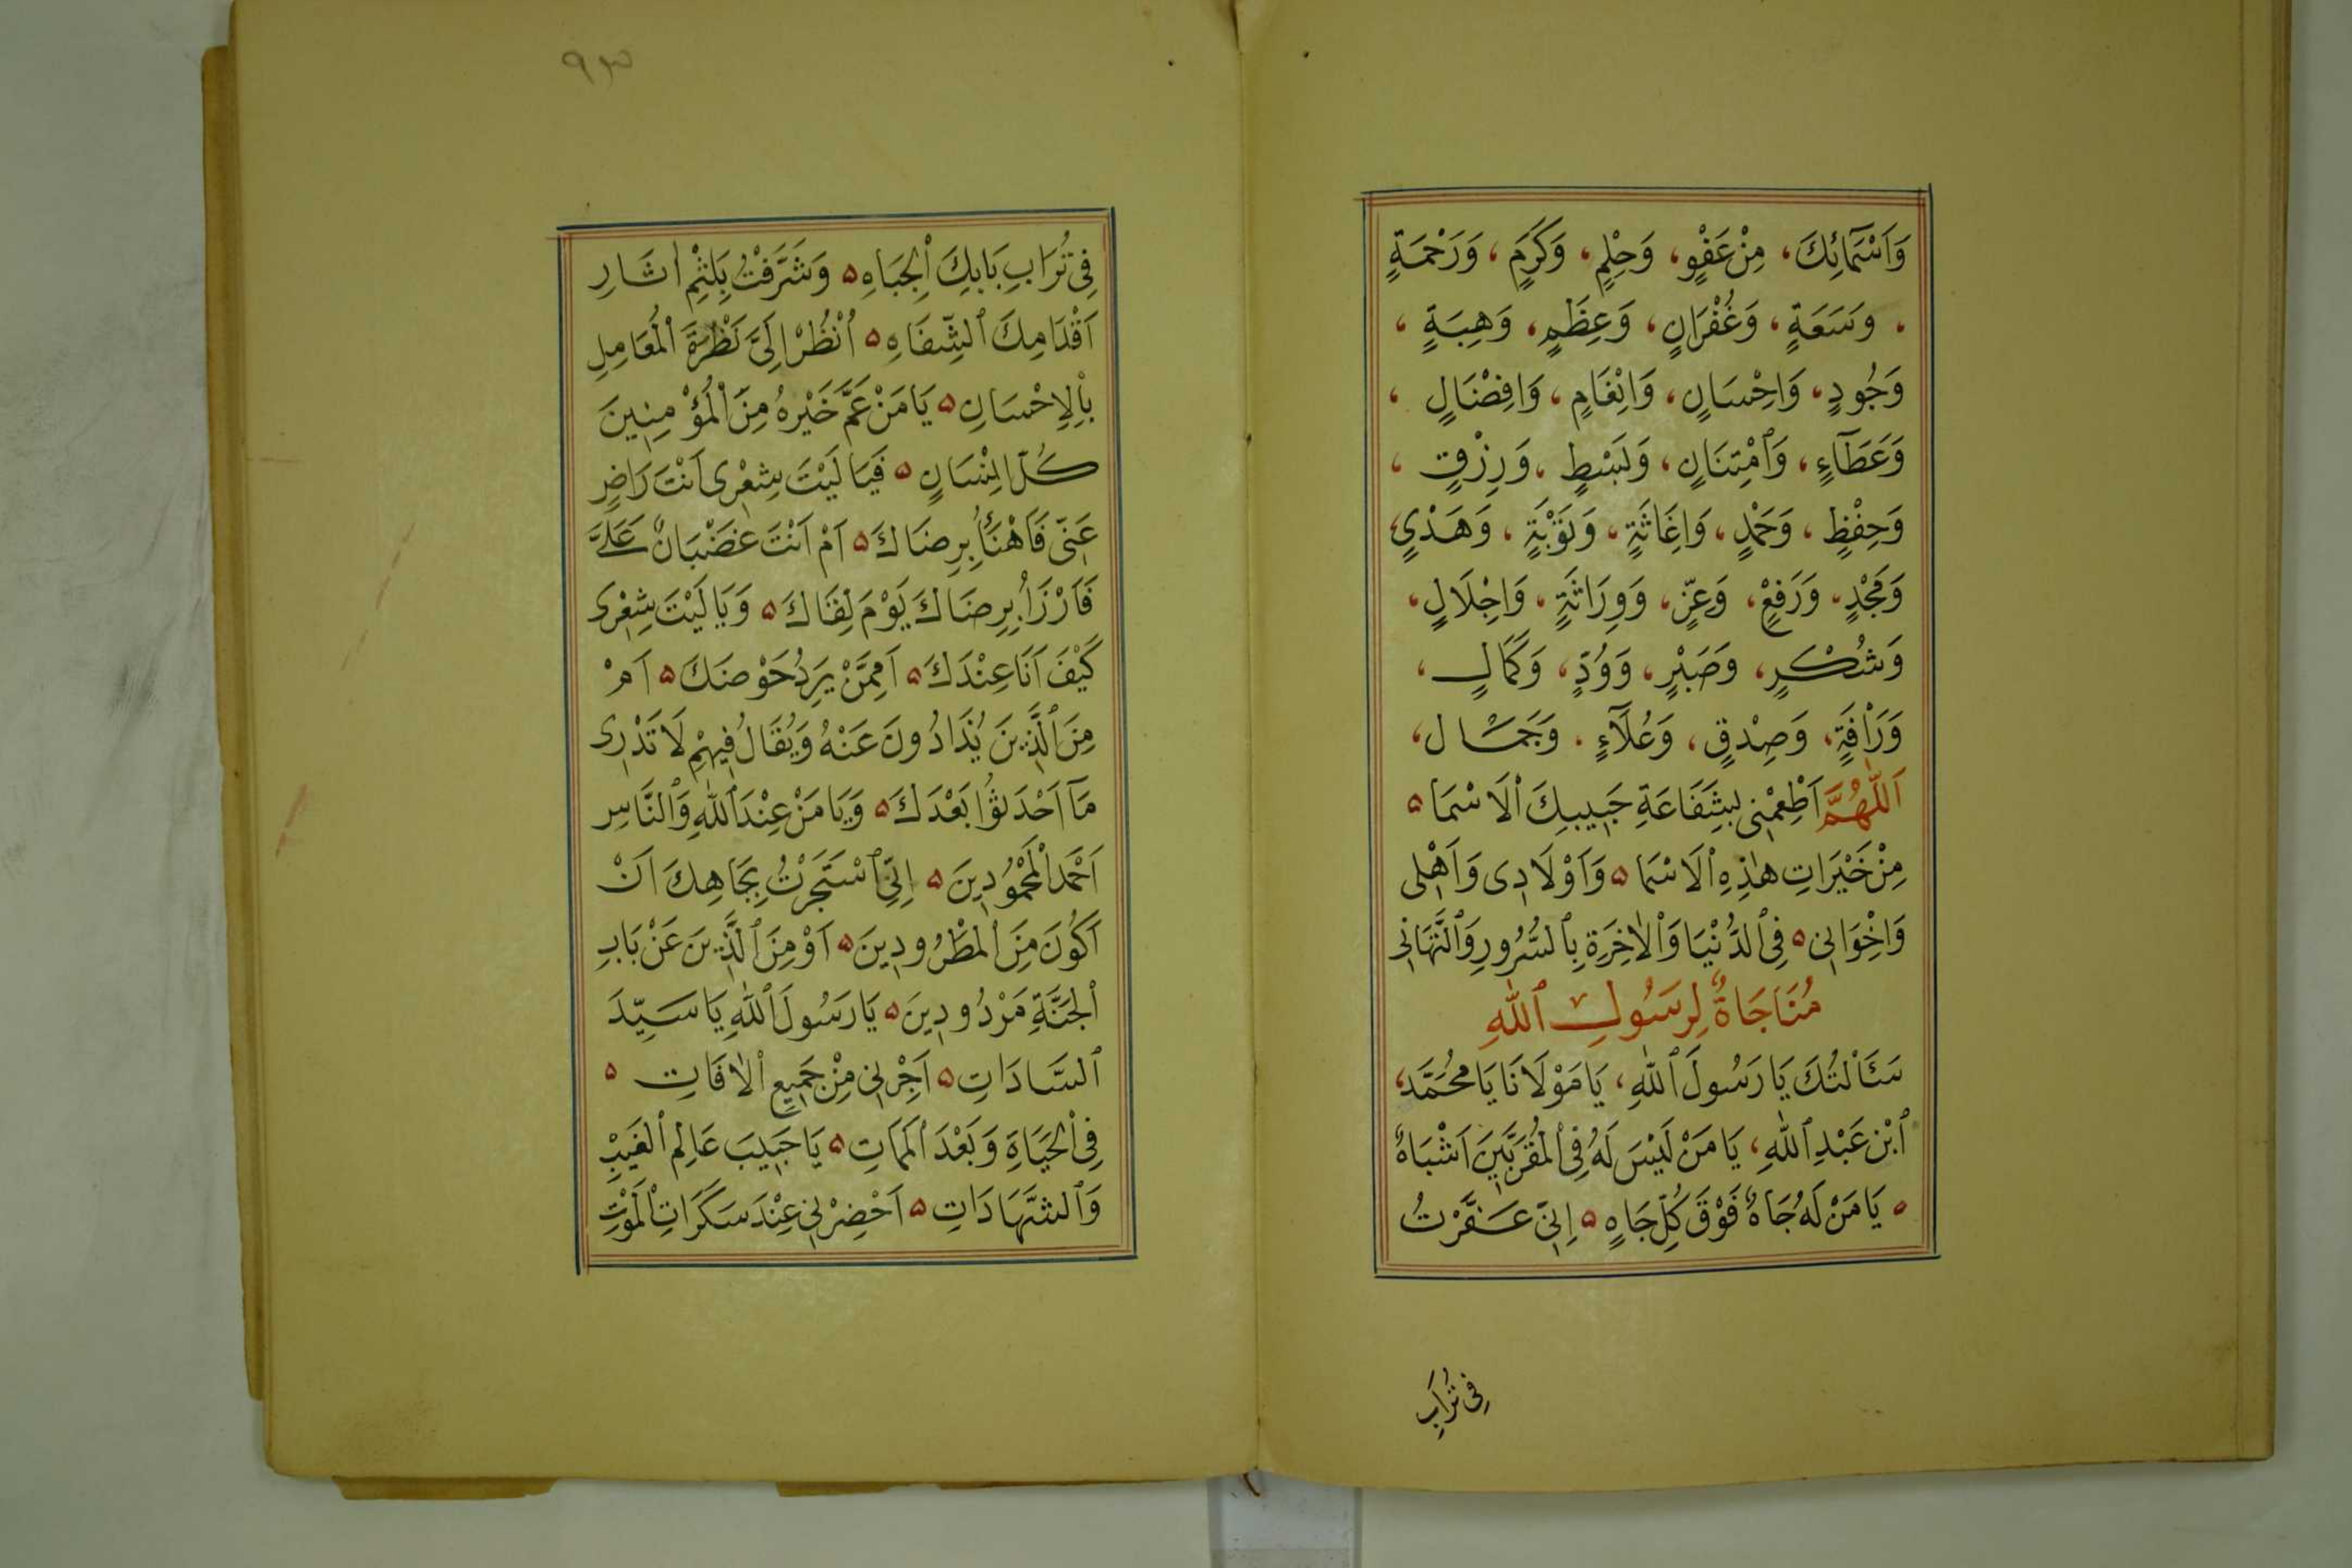 وَاَسْمَآئِكَ، مِنْ عَفْوٍ، وَحِلْمٍ، وَكَرَمٍ، وَرَحْمَةٍ
، وَسَعَةٍ، وَغُفْرَانٍ، وَعِظَمٍ، وَهِبَةٍ،
وَجُودٍ، وَاِحْسَانٍ، وَاِنْعَامٍ، وَاِفْضَالٍ،
وَعَطَآءٍ، وَٱمْتِنَانٍ، وَبَسْطٍ، وَرِزْقٍ،
وَحِفْظٍ، وَحَمْدٍ، وَاِغَاثَةٍ، وَتَوْبَةٍ، وَهَدْيٍ،
وَمَجْدٍ، وَرَفْعٍ، وَعِزٍّ، وَوِرَاثَةٍ، وَاِجْلَالٍ،
وَشُكْرٍ، وَصَبْرٍ، وَوُدٍّ، وَكَمَالٍ،
وَرَاْفَةٍ، وَصِدْقٍ، وَعُلَآءٍ، وَجَمَالٍ،
اَللّٰهُمَّ اَطْعِمْنِى بِشَفَاعَةِ حَبِيبِكَ ٱلْاَسْمَا ۵
مِنْ خَيْرَاتِ هٰذِهِ ٱلْاَسْمَا ۵ وَاَوْلَادِى وَاَهْلِى
وَاِخْوَانِى ۵ فِى ٱلدُّنْيَا وَٱلْاٰخِرَةِ بِٱلسُّرُورِ وَٱلتَّهَانِى
مُنَاجَاةٌ لِرَسُولِ ٱللّٰهِ
سَئَالْتُكَ يَا رَسُولَ ٱللّٰهِ، يَا مَوْلَانَا يَا مُحَمَّدَ،
ٱبْنَ عَبْدِ ٱللّٰهِ، يَا مَنْ لَيْسَ لَهُ فِى ٱلْمُقَرَّبِينَ اَشْبَاهٌ
۵ يَا مَنْ لَهُ جَاهٌ فَوْقَ كُلِّ جَاهٍ ۵ اِنِّى عَفَّرْتُ
فِى تُرَابِ
٩٣
فِى تُرَابِ بَابِكَ ٱلْجِبَاهِ ۵ وَشَرَّفْتُ بِلَثْمِ اٰثَارِ
اَقْدَامِكَ ٱلشِّفَاهِ ۵ اُنْظُرْ اِلَىَّ نَظْرَةَ ٱلْمُعَامِلِ
بِٱلْاِحْسَانِ ۵ يَا مَنْ عَمَّ خَيْرُهُ مِنَ ٱلْمُؤْمِنِينَ
كُلَّ اِنْسَانٍ ۵ فَيَا لَيْتَ شِعْرِى اَنْتَ رَاضٍ
عَنِّى فَاَهْنَأُ بِرِضَاكَ ۵ اَمْ اَنْتَ غَضْبَانٌ عَلَىَّ
فَاَرْزَأُ بِرِضَاكَ يَوْمَ لِقَاكَ ۵ وَيَا لَيْتَ شِعْرِى
كَيْفَ اَنَا عِنْدَكَ ۵ اَمِمَّنْ يَرِدُ حَوْضَكَ ۵ اَمْ
مِنَ ٱلَّذِينَ يُذَادُونَ عَنْهُ وَيُقَالُ فِيهِمْ لَا تَدْرِى
مَآ اَحْدَثُوا بَعْدَكَ ۵ وَيَا مَنْ عِنْدَ ٱللّٰهِ وَٱلنَّاسِ
اَحْمَدُ ٱلْمَحْمُودِينَ ۵ اِنِّى ٱسْتَجَرْتُ بِجَاهِكَ اَنْ
اَكُونَ مِنَ ٱلْمَطْرُودِينَ ۵ اَوْ مِنَ ٱلَّذِينَ عَنْ بَابِ
ٱلْجَنَّةِ مَرْدُودِينَ ۵ يَا رَسُولَ ٱللّٰهِ يَا سَيِّدَ
ٱلسَّادَاتِ ۵ اَجِرْنِى مِنْ جَمِيعِ ٱلْاٰفَاتِ ۵
فِى ٱلْحَيَاةِ وَبَعْدَ ٱلْمَمَاتِ ۵ يَا حَبِيبَ عَالِمِ ٱلْغَيْبِ
وَٱلشَّهَادَاتِ ۵ اَحْضِرْنِى عِنْدَ سَكَرَاتِ ٱلْمَوْتِ